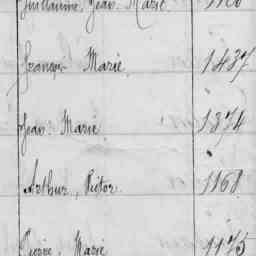 Guillaume, Jean, Marie.
François Marie. 1437
Jean Marie 1374
Arthur, Victor. 1168
Pierre, Marie 1175